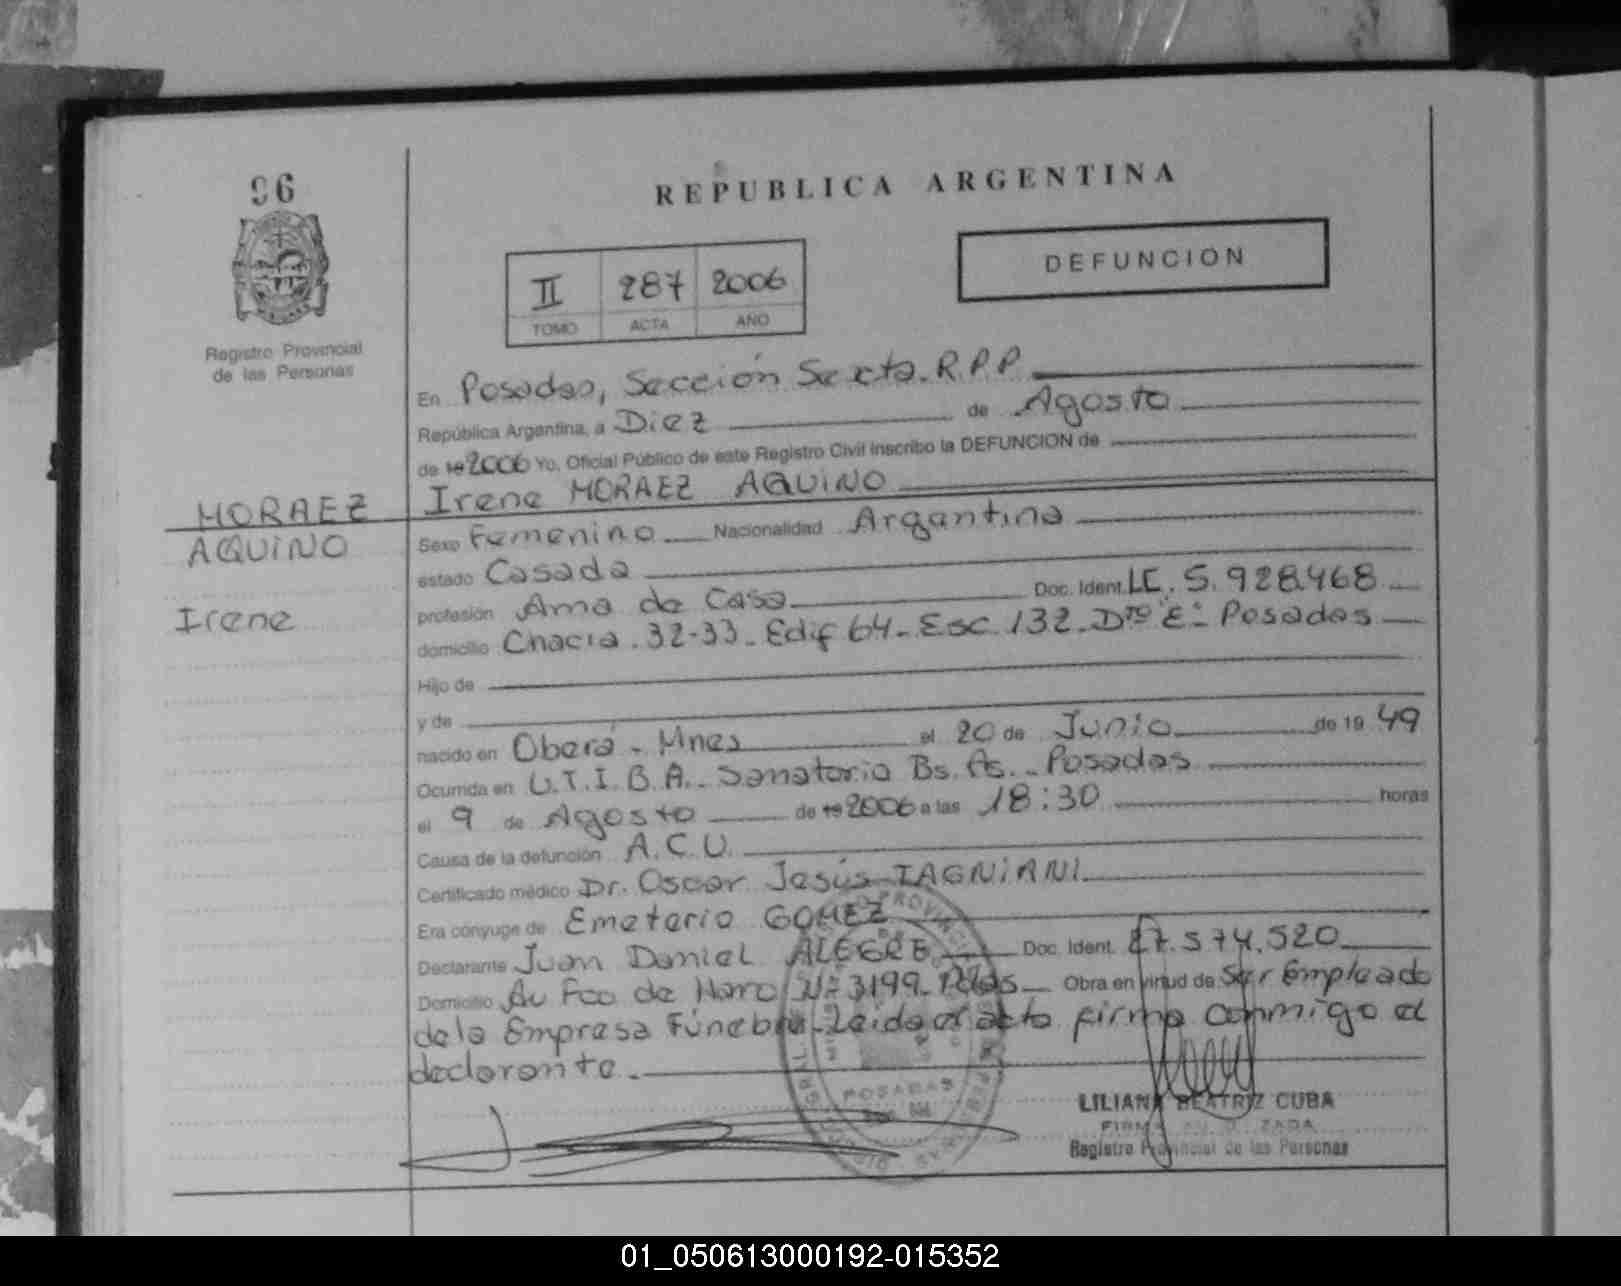 96
REPUBLICA ARGENTINA
DEFUNCION
II 287 2006
TOMO ACTA AÑO
Registro Provincial
de las Personas
En Posadas, Sección Sexta. R.P.P.
República Argentina, a Diez de Agosto
de 19 2006 Yo, Oficial Público de este Registro Civil inscribo la DEFUNCION de
Irene MORAEZ AQUINO
MORAEZ
AQUINO
Irene
Sexo Femenino Nacionalidad Argentina
estado Casada
profesión Ama de Casa Doc. Ident. LC. 5.928.468
domicilio Chacra. 32-33. Edif 64. Esc. 132. Dto "E" Posadas
Hijo de
y de
nacido en Oberá - Mnes el 20 de Junio de 19 49
Ocurrida en U.T.I.B.A. Sanatorio Bs. As. Posadas
el 9 de Agosto de 19 2006 a las 18:30 horas
Causa de la defunción A.C.V.
Certificado médico Dr. Oscar Jesús TAGNIANI
Era cónyuge de Emeterio GOMEZ
Declarante Juan Daniel ALEGRE Doc. Ident. 27.574.520
Domicilio Av Fco de Haro Nº 3199 - Pdas Obra en virtud de Ser Empleado
de la Empresa Fúnebre - Leida el acta firma conmigo el
declarante.
POSADAS
LILIANA BEATRIZ CUBA
FIRMA AUTORIZADA
Registro Provincial de las Personas
01_050613000192-015352